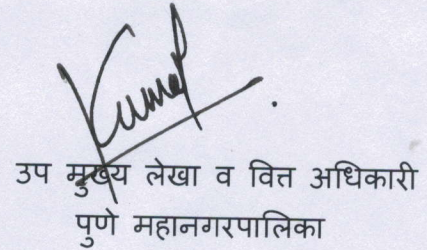 उप मुख्य लेखा व वित्त अधिकारी
पुणे महानगरपालिका